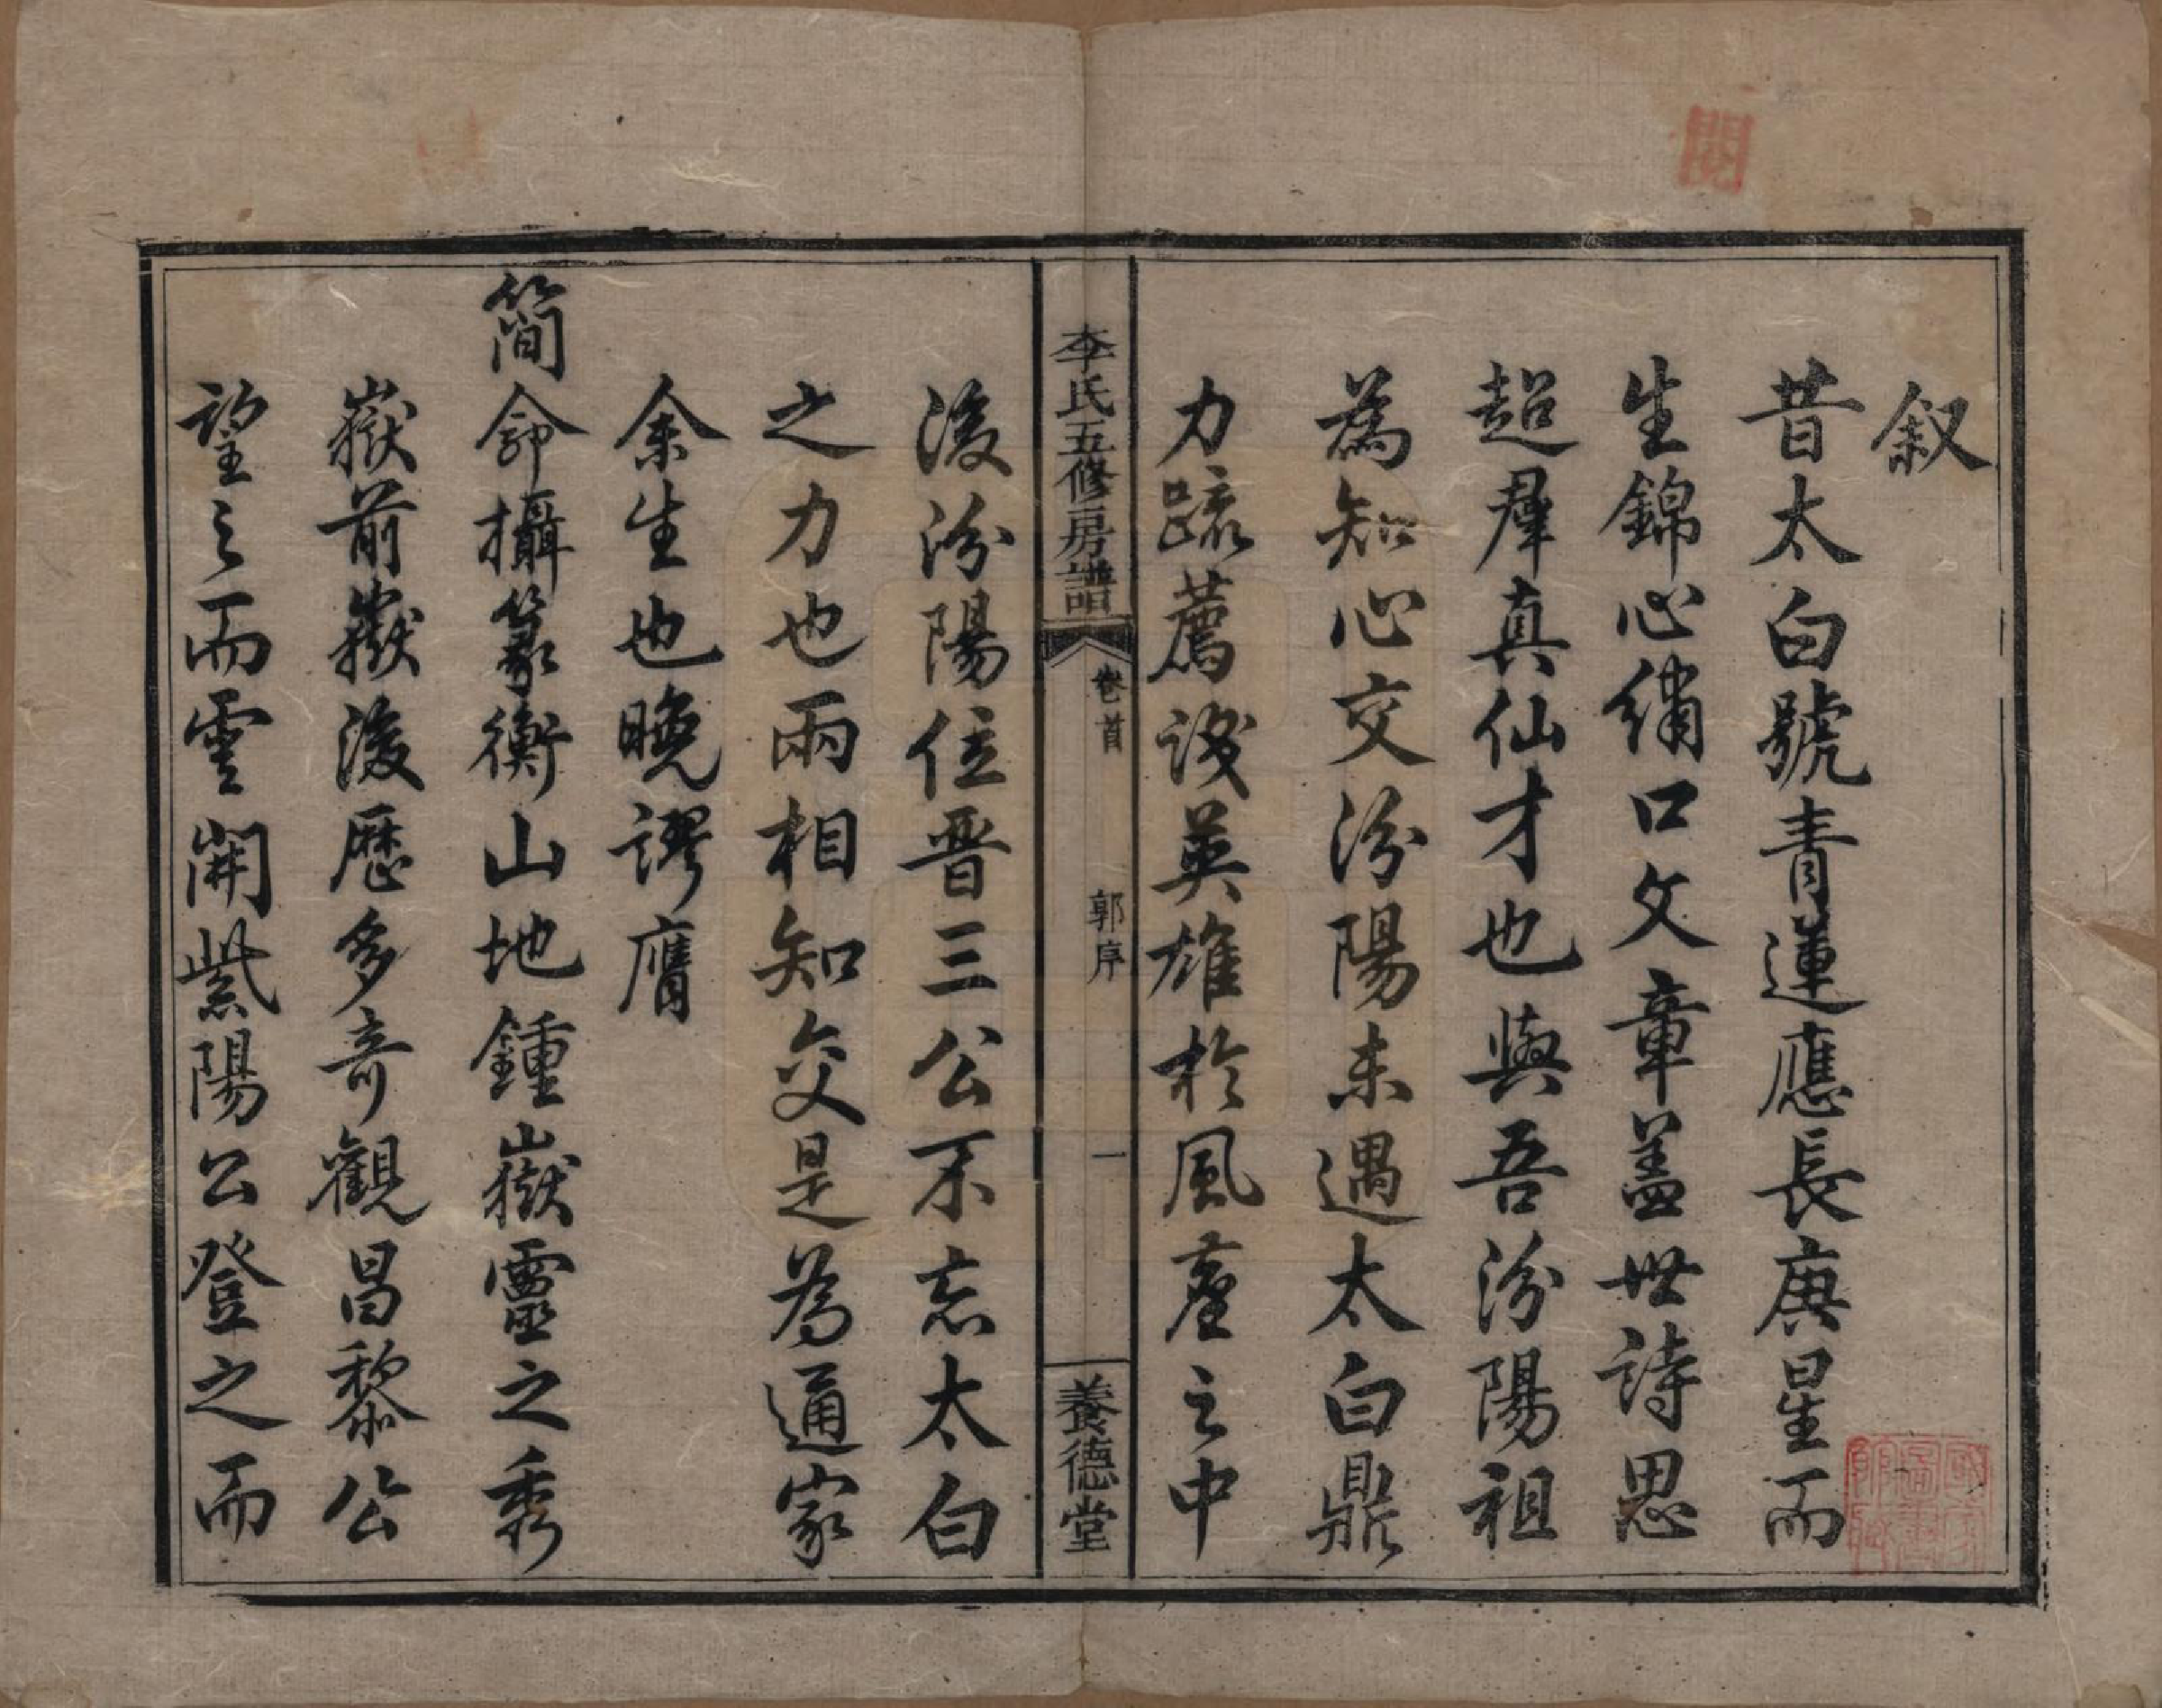 叙
昔太白號青蓮應長庚星而
生錦心繡口文章蓋世詩思
超羣真仙才也與吾汾陽祖
為知心交汾陽未遇太白鼎
力疏薦識英雄於風塵之中
李氏五修房譜
卷首
郭序
一
養德堂
後汾陽位晋三公不忘太白
之力也兩相知交是為通家
余生也晚謬膺
簡命攝篆衡山地鍾嶽靈之秀
嶽前嶽後歷多奇觀昌黎公
望之而雲開紫陽公登之而
閱